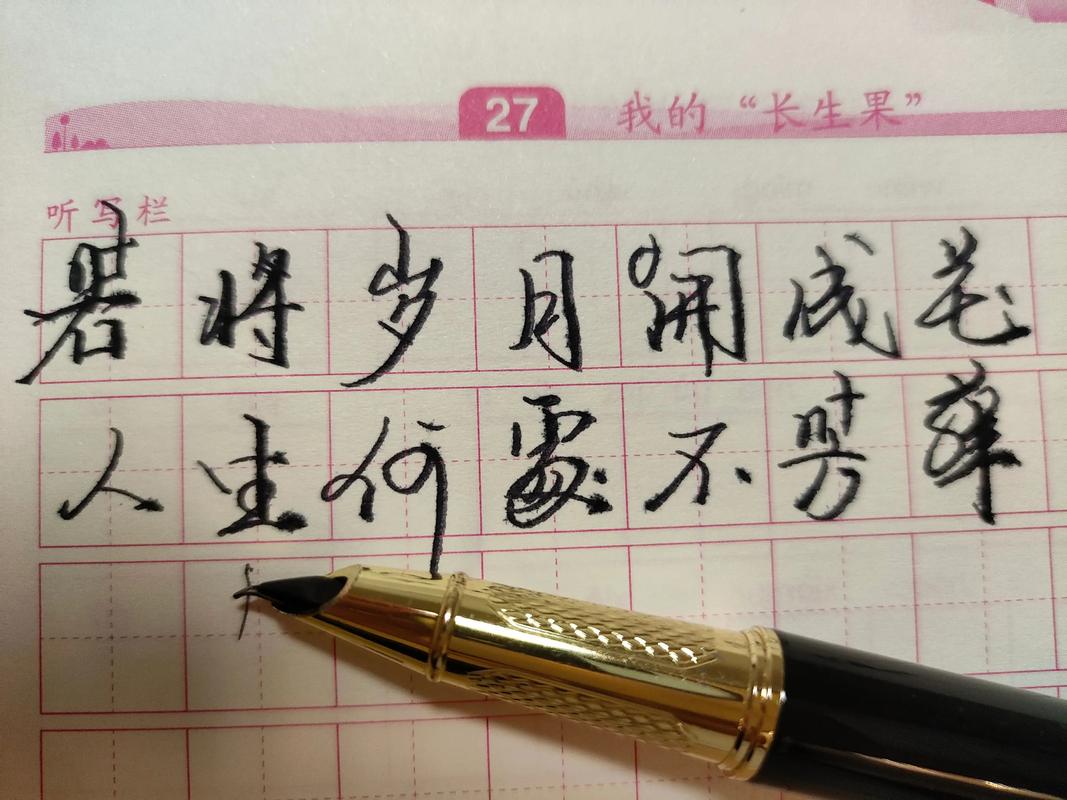 27 我的“长生果”
听写栏
若将岁月开成花
人生何處不芳华